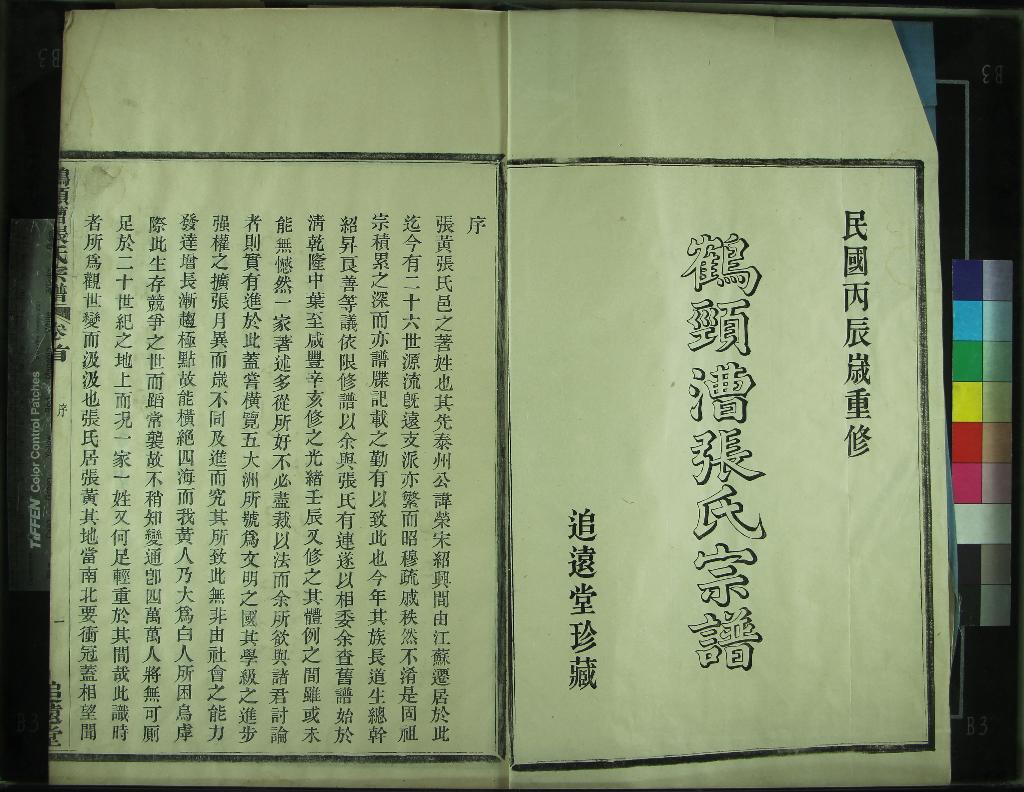 民國丙辰嵗重修
鶴頸漕張氏宗譜
追遠堂珍藏
序
張黃張氏邑之著姓也其先泰州公諱榮宋紹興間由江蘇遷居於此
迄今有二十六世源流旣遠支派亦繁而昭穆疏戚秩然不淆是固祖
宗積累之深而亦譜牒記載之勤有以致此也今年其族長道生總幹
紹昇良善等議依限修譜以余與張氏有連遂以相委余查舊譜始於
清乾隆中葉至咸豐辛亥修之光緒壬辰又修之其體例之間雖或未
能無憾然一家著述多從所好不必盡裁以法而余所欲與諸君討論
者則實有進於此蓋嘗橫覽五大洲所號爲文明之國其學級之進步
强權之擴張月異而嵗不同及進而究其所致此無非由社會之能力
發達增長漸趨極點故能橫絕四海而我黃人乃大爲白人所困烏虖
際此生存競爭之世而蹈常襲故不稍知變通卽四萬萬人將無可厠
足於二十世紀之地上而况一家一姓又何足輕重於其間哉此識時
者所爲觀世變而汲汲也張氏居張黃其地當南北要衝冠蓋相望聞
鶴頸漕張氏宗譜
卷之首
序
一
追遠堂
TIFFEN Color Control Patches
B3
B3
B3
B3